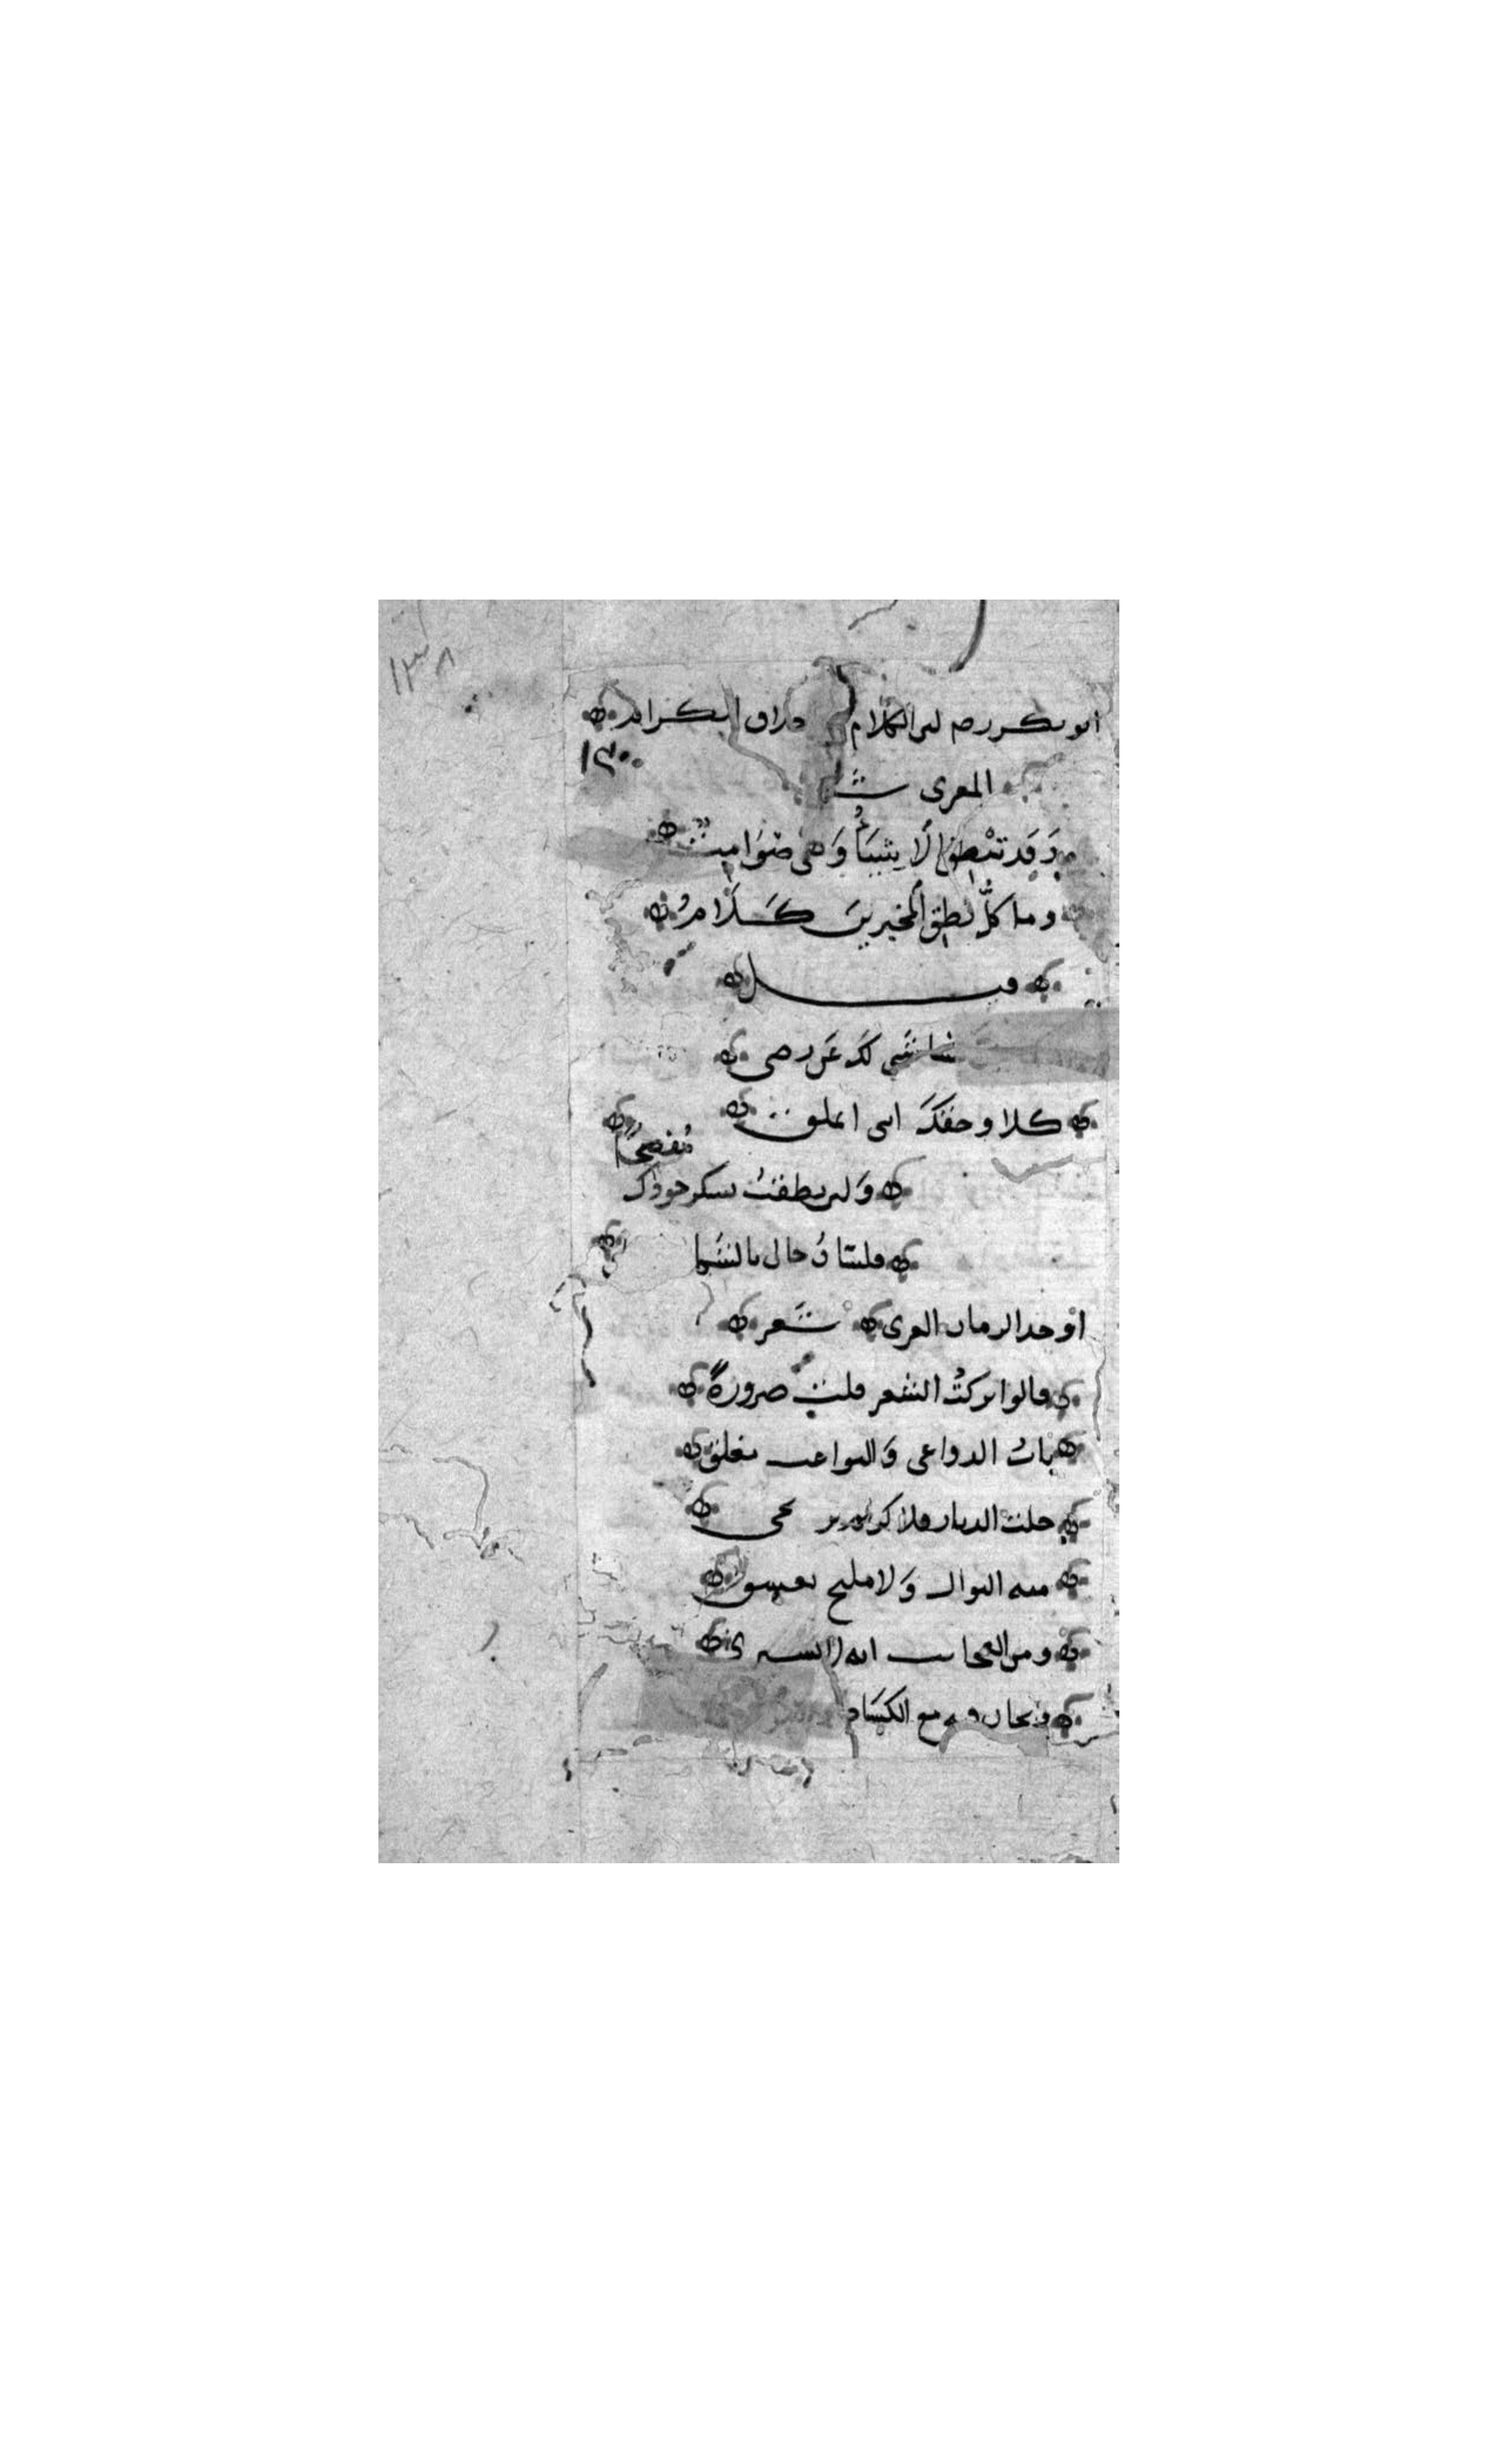 ١٣٨
ابو بكر رحم لين الكلام مراق الكرام
١٣٠٠
المعرى
وَقَد تنْطِقُ الأَشْيَاءُ وَهىَ صَوَامِت
وما كلُّ نُطِق المُخبرينَ كَلَامُ
قيل
شاشى لَكَ عَن رضى
كلا وحقكَ اننى اتملق
وَلئن نطقتُ بشكر جودك مُفصحًا
فلسَانُ حالى بالشكا
اوحد الزمان الغزى شعر
قالوا تركتُ الشعر قلت ضرورةً
بابُ الدواعى وَالبواعث مغلق
خلت الديار فلا كريم يرتجى
منه النوال وَلا مليح يعشق
ومن العجائب انه لا يشترى
ويخان فيه مع الكسَاد